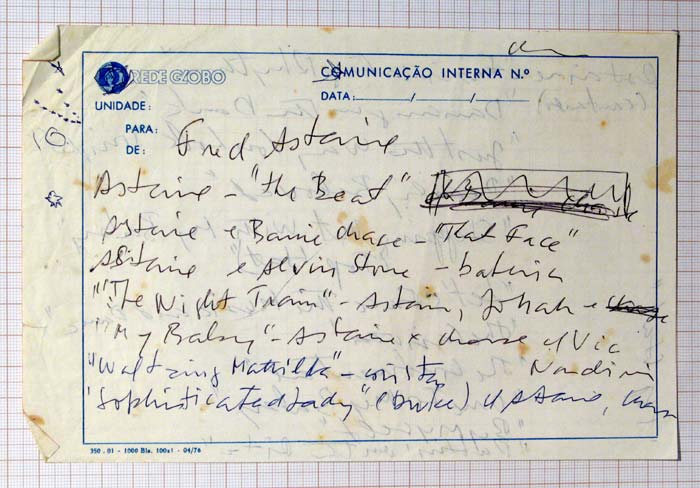 REDE GLOBO
COMUNICAÇÃO INTERNA N.º
DATA: / /
UNIDADE:
PARA:
DE:
Fred Astaire
Astaire - "The Beat"
Astaire e Barrie Chase - "That Face"
Astaire e Alvin Stone - bateria
"The Night Train" - Astaire, Jonah e
"My Baby" - Astaire x chase c/ Vic
"Waltzing Mathilda" -
"Sophisticated Lady" (Duke) c/ Astaire, Chase
350.01 - 1000 Bls. 100x1 - 04/76